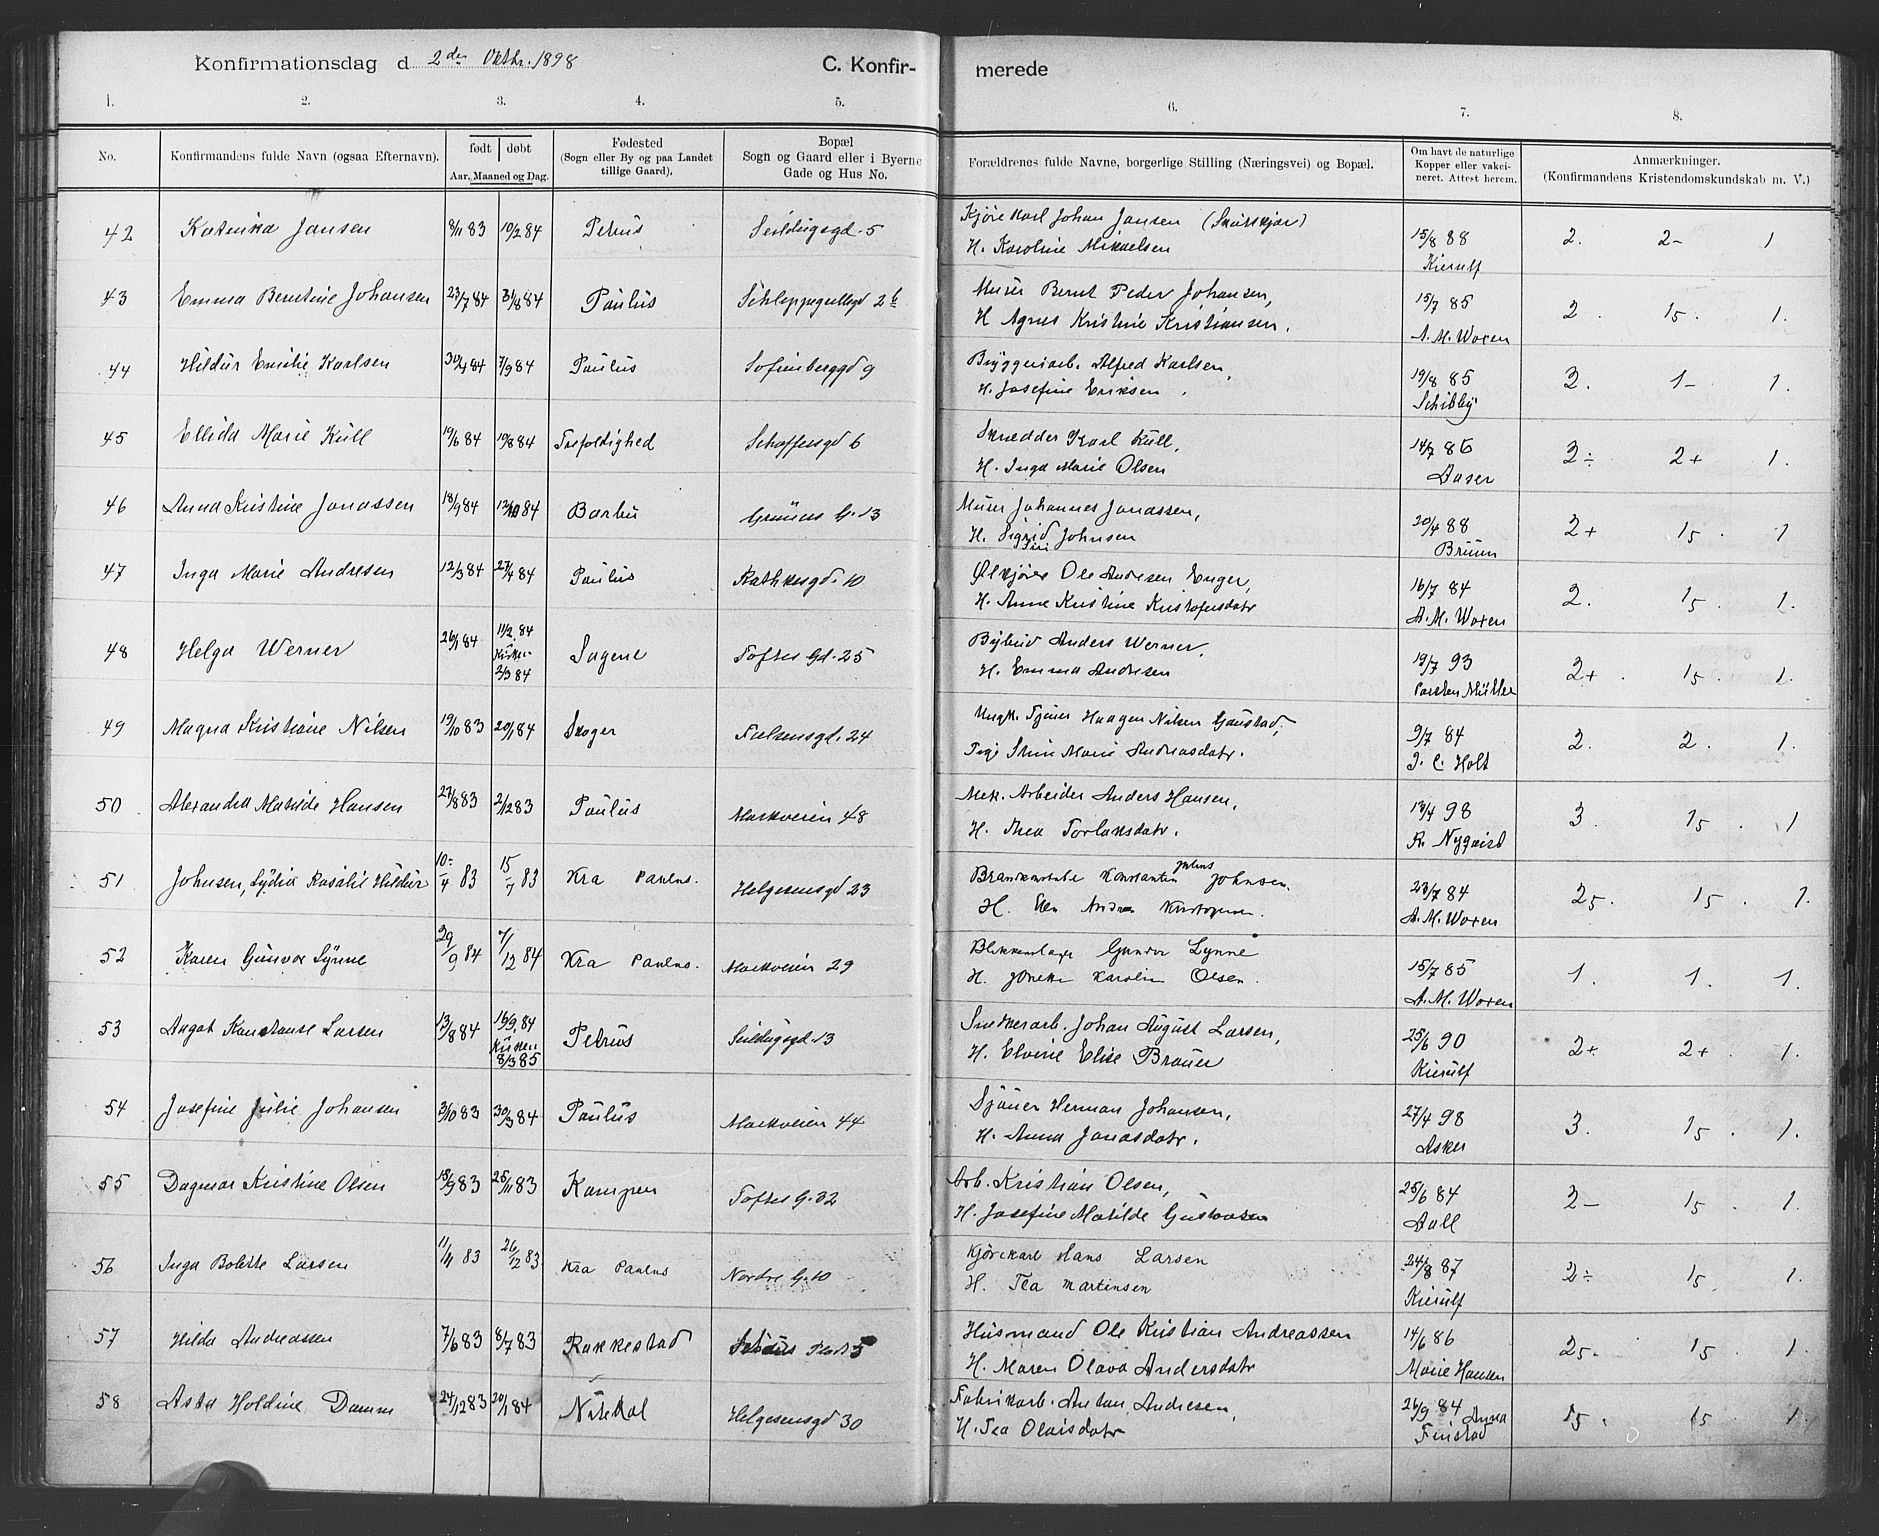 Konfirmationsdag d 2den Oktbr. 1898 C. Konfir- merede
1. 2. 3. 4. 5. 6. 7. 8.
No. Konfirmandens fulde Navn (ogsaa Efternavn). født døbt Aar, Maaned og Dag. Fødested (Sogn eller By og paa Landet tillige Gaard). Bopæl Sogn og Gaard eller i Byerne Gade og Hus No. Forældrenes fulde Navne, borgerlige Stilling (Næringsvei) og Bopæl. Om havt de naturlige Kopper eller vakcineret. Attest herom. Anmærkninger. (Konfirmandens Kristendomskundskab m. V.)
42 Katinka Jansen 8/11 83 10/2 84 Petrus Seildugsgd. 5 Kjørekarl Johan Jansen 15/8 88 2. 2- 1
H. Karoline Mikaelsen Kierulf
43 Emma Berntine Johansen 23/7 84 31/8 84 Paulus Schleppegrellsgd 2b Murer Bernt Peder Johansen, 15/7 85 2. 15. 1.
H Agnes Kristine Kristiansen. A. M. Woxen
44 Hildur Emilie Karlsen 30/4 84 7/9 84 Paulus Sofienberggd 9 Bryggeriarb. Alfred Karlsen, 19/8 85 3. 1- 1.
H. Josefine Eriksen. Schibby
45 Ellida Marie Kull 19/6 84 10/8 84 Trefoldighed Schoffersgd 6 Skrædder Karl Kull, 14/7 86 3÷ 2+ 1.
H. Inga Marie Olsen Aaser
46 Anna Kristine Jonassen 18/9 84 12/10 84 Barbu Grüners G. 13 Murer Johannes Jonassen, 20/4 88 2+ 15. 1
H. Sigrid Johnsen Bruun
47 Inga Marie Andresen 12/3 84 27/4 84 Paulus Rathkesgd. 10 Ølkjører Ole Andresen Enger, 16/7 84 2. 15. 1.
H. Anne Kristine Kristofersdatr A. M. Woxen
48 Helga Werner 26/1 84 11/2 84 Kirken 2/3 84 Sagene Toftes Gd. 25 Bybud Anders Werner, 19/7 93 2+. 15. 1.
H. Emma Andresen Carsten Müller
49 Magna Kristiane Nilsen 19/10 83 20/1 84 Skoger Falsensgd. 24 Ungk. Tjener Haagen Nilsen Gaustad, 9/7 84 2. 2. 1.
Pige Stine Marie Andreasdatr. J. C. Holt
50 Alexandra Matilde Hansen 27/8 83 2/12 83 Paulus Markveien 48 Mek. Arbeider Anders Hansen, 13/4 98 3. 15. 1
H. Thea Torlaksdatr. R. Nyqvist
51 Johnsen, Lydia Rosalie Hildur 10/4 83 15/7 83 Kra Paulus. Helgesensgd 23 Brandkonstabel Konstantin Julius Johnsen. 23/7 84 25. 15. 1.
H. Elen Andrea Kristofersen. A. M. Woxen
52 Karen Gunvor Lynne 29/9 84 7/12 84 Kra Paulus. Markveien 29 Blikkenslager Gunder Lynne 15/7 85 1. 1. 1.
H. Karoline Olsen. A. M. Woxen
53 Aagot Konstanse Larsen 13/8 84 15/9 84 Kirken 8/3 85 Petrus Seildugsgd. 13 Snekkerarb. Johan August Larsen, 25/6 90 2+ 2+. 1.
H. Elvine Elise Brauer Kierulf
54 Josefine Julie Johansen 3/10 83 30/3 84 Paulus Markveien 44 Sjauer Herman Johansen, 27/4 98 3. 15. 1.
H. Anna Jonasdatr. Asker
55 Dagmar Kristine Olsen 15/9 83 25/11 83 Kampen Toftes G. 32 Arb. Kristian Olsen, 25/6 84 2- 15. 1.
H. Josefine Matilde Gustavsen Aall
56 Inga Bolette Larsen 11/11 83 26/12 83 Kra Paulus Nordre G. 10 Kjørekarl Hans Larsen 24/8 87 2÷ 15 1.
H. Tea Martinsen Kierulf
57 Hilda Andreassen 7/6 83 8/7 83 Rakkestad Plads 5 Husmand Ole Kristian Andreassen 14/6 86 25- 15. 1.
H. Maren Olava Andersdatr Marie Hansen
58 Asta Holdine Damm 24/12 83 20/1 84 Nitedal Helgesensgd 30 Fabrikarb. Anton Andresen, 26/9 84 Anna 15. 15. 1.
H. Tea Olaisdatr Finstad